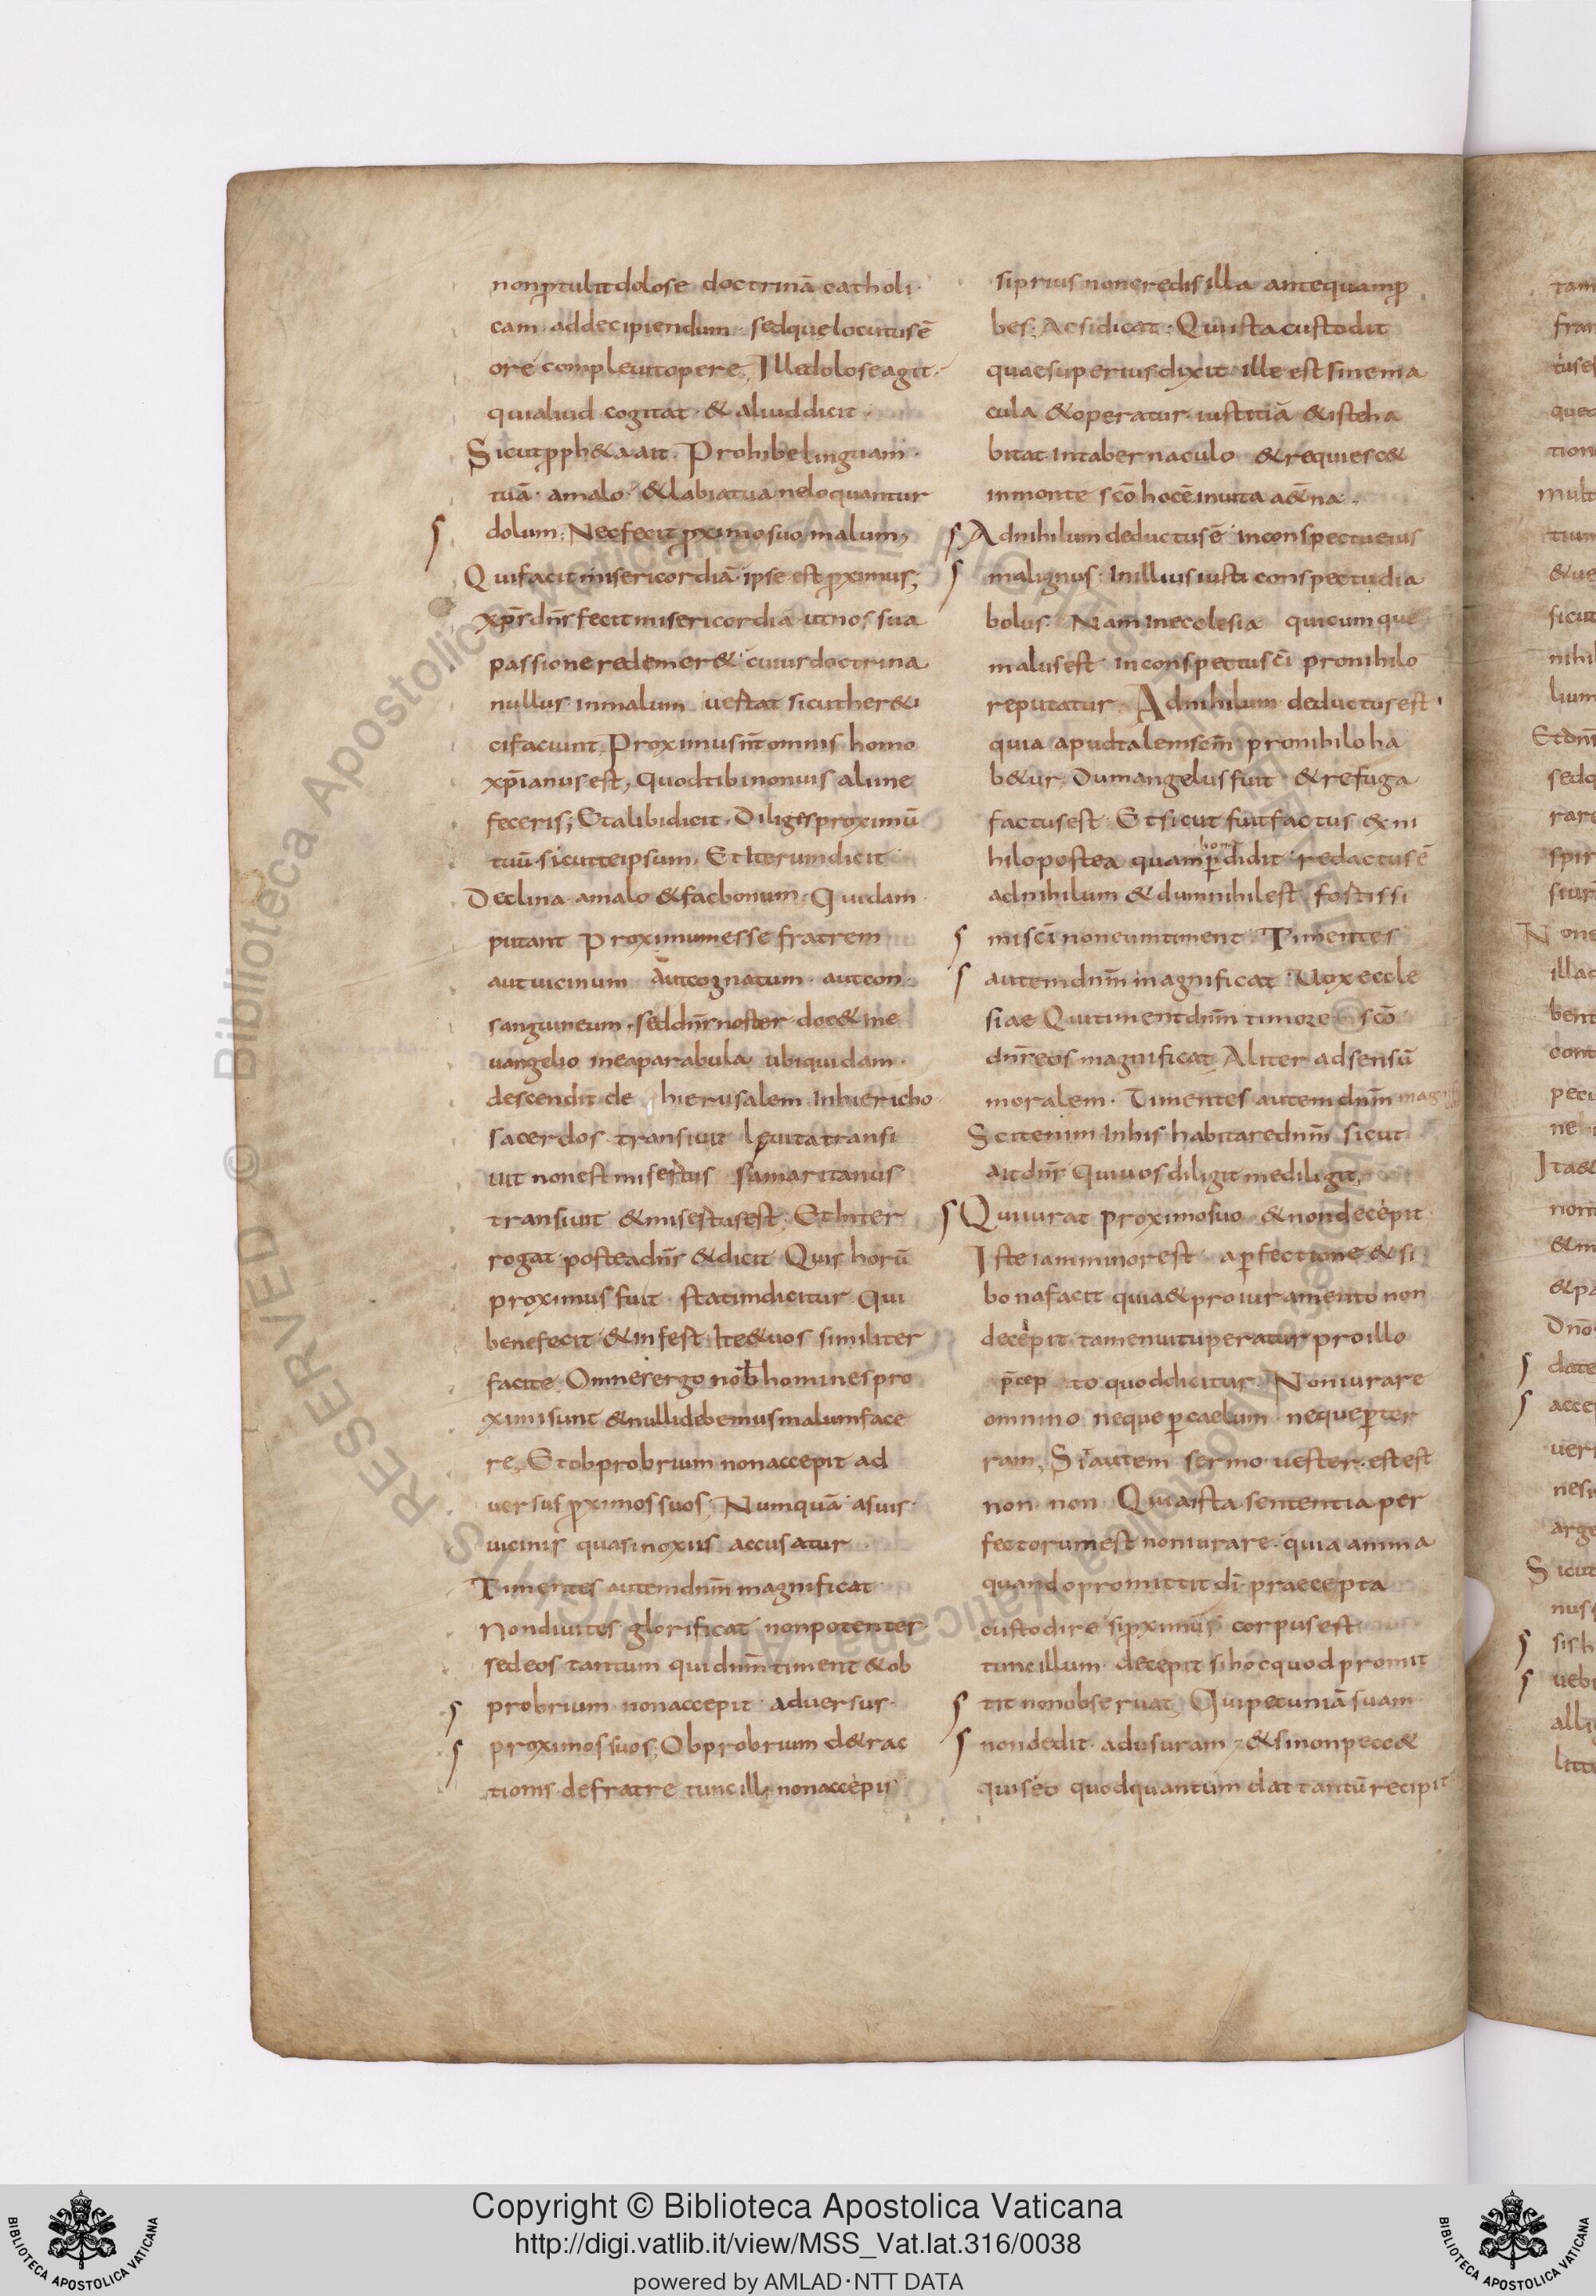 non ptulit dolose doctrinā catholi
cam addecipiendum sedque locutus ē
ore compleuit opere, Ille dolose agit
qui aliud cogitat & aliud dicit
Sicut pph&a ait Prohibe linguam
tuā amalo & labia tua ne loquantur
dolum; Nec fecit pximo suo malum,
Qui facit misericordiā ipse est pximus;
xp̄s dn̄s fecit misericordiā ut nos sua
passione redemer& cuius doctrina
nullus in malum uertat sicut her&i
ci faciunt, Proximus n̄t omnis homo
xp̄ianus est, Quod tibi non uis alii ne
feceris; Et alibi dicit Diliges proximū
tuū sicut teipsum Et Iterum dicit
Declina amalo & fac bonum Quidam
putant Proximum esse fratrem
aut uicinum aut cognatum aut con
sanguineum sed dn̄s noster doc& ine
uangelio in ea parabula ubi quidam
descendit de hierusalem In hiericho
sacerdos transiuit leuita transi
uit non est misertus samaritanus
transiuit & misertus est; Et Inter
rogat postea dn̄s & dicit Quis horū
proximus fuit statim dicitur Qui
benefecit & infest Ite & uos similiter
facite, Omnes ergo nob homines pro
ximi sunt & nulli debemus malum face
re, Et obprobrium non accepit ad
uersus pximos suos; Numquā a suis
uicinis quasi noxiis accusatur
Timentes autem dn̄m magnificat
Non diuites glorificat non potenter
sed eos tantum qui dn̄m timent & ob
probrium non accepit aduersus
proximos suos; Obprobrium d&rac
tionis de fratre tunc ille non accepit
si prius non credis illa antequam p
bes; Ac si dicat Qui ista custodit
quae superius dixit ille est sine ma
cula & operatur iustitiā & iste ha
bitat In tabernaculo & requiesc&
in monte sc̄o hoc ē in uita a&̄na
Ad nihilum deductus ē in conspectu eius
malignus In illius iusti conspectu dia
bolus Nam In ecclesia quicumque
malus est in conspectu sc̄i pro nihilo
reputatur Ad nihilum deductus est
quia apud talem sc̄m pro nihilo ha
b&ur, Dum angelus fuit & refuga
factus est Et sicut fuit factus ex ni
hilo postea quam bonū pdidit redactus ē
ad nihilum & dum nihil est fortissi
mi sc̄i non eum timent Timentes
autem dn̄m magnificat Uox eccle
siae Qui timent dn̄m timore sc̄o
dn̄s eos magnificat, Aliter ad sensū
moralem Timentes autem dn̄m
Scit enim In his habitare dn̄m sicut
ait dn̄s Qui uos diligit me diligit,
Qui iurat proximo suo & non decepit
Iste iam minor est a pfectione & si
bona facit quia & pro iuramento non
decepit tamen uituperatur pro illo
p̄cep to quod dicitur Non iurare
omnino neque p caelum neque p ter
ram, Si autem sermo uester est est
non non Quia ista sententia per
fectorum est non iurare quia anima
quando promittit dī praecepta
custodire si pximus corpus est
tunc illum decepit si hoc quod promit
tit non obseruat, Qui pecuniā suam
non dedit ad usuram & si non pecc&
quis eo quod quantum dat tantū recipit
Copyright © Biblioteca Apostolica Vaticana
http://digi.vatlib.it/view/MSS_Vat.lat.316/0038
powered by AMLAD·NTT DATA